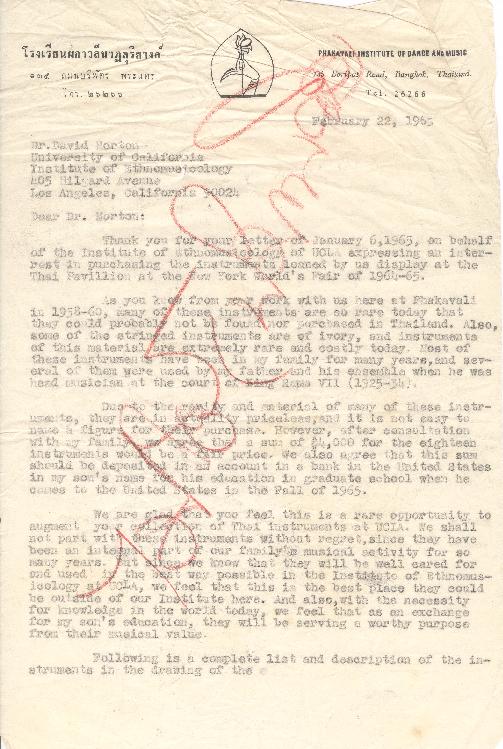 โรงเรียนผกาวลีนาฏดุริยางค์
PHAKAVALI INSTITUTE OF DANCE AND MUSIC
Road, Bangkok, Thailand.
โทร. ๒๖๒๖๖
Tel. 26266
February 22, 1965
Dr.David Morton
University of California
Institute of Ethnomusicology
405 Hilgard Avenue
Los Angeles, California 90024
Dear Dr. Morton:
Thank you for your letter of January 6,1965, on behalf
of the Institute of Ethnomusicology of UCLA expressing an inter-
rest in purchasing the instruments loaned by us display at the
Thai Pavillion at the New York World's Fair of 1964-65.
As you know from your work with us here at Phakavali
in 1958-60, many of these instruments are so rare today that
they could probably not be found nor purchased in Thailand. Also,
some of the stringed instruments are of ivory, and instruments
of this material are extremely rare and costly today. Most of
these instruments have been in my family for many years,and sev-
eral of them were used by father and his ensemble when he was
head musician at the court of King Rama VII (1925-34).
Due to the rarity and material of many of these instr-
uments, they are in actuality priceless,and it is not easy to
name a figure for their purchase. However, after consultation
with my family, we agree that a sum of $4,000 for the eighteen
instruments would be a fair price. We also agree that this sum
should be deposited in an account in a bank in the United States
in my son's name for his education in graduate school when he
comes to the United States in the Fall of 1965.
We are glad that you feel this is a rare opportunity to
augment your collection of Thai instruments at UCLA. We shall
not part with these instruments without regret,since they have
been an integral part of our family's musical activity for so
many years. But since we know that they will be well cared for
and used in the best way possible in the Institute of Ethnomus-
icology at UCLA, we feel that this is the best place they could
be outside of our Institute here. And also,with the necessity
for knowledge in the world today, we feel that as an exchange
for my son's education, they will be serving a worthy purpose
from their musical value.
Following is a complete list and description of the in-
struments in the drawing of the